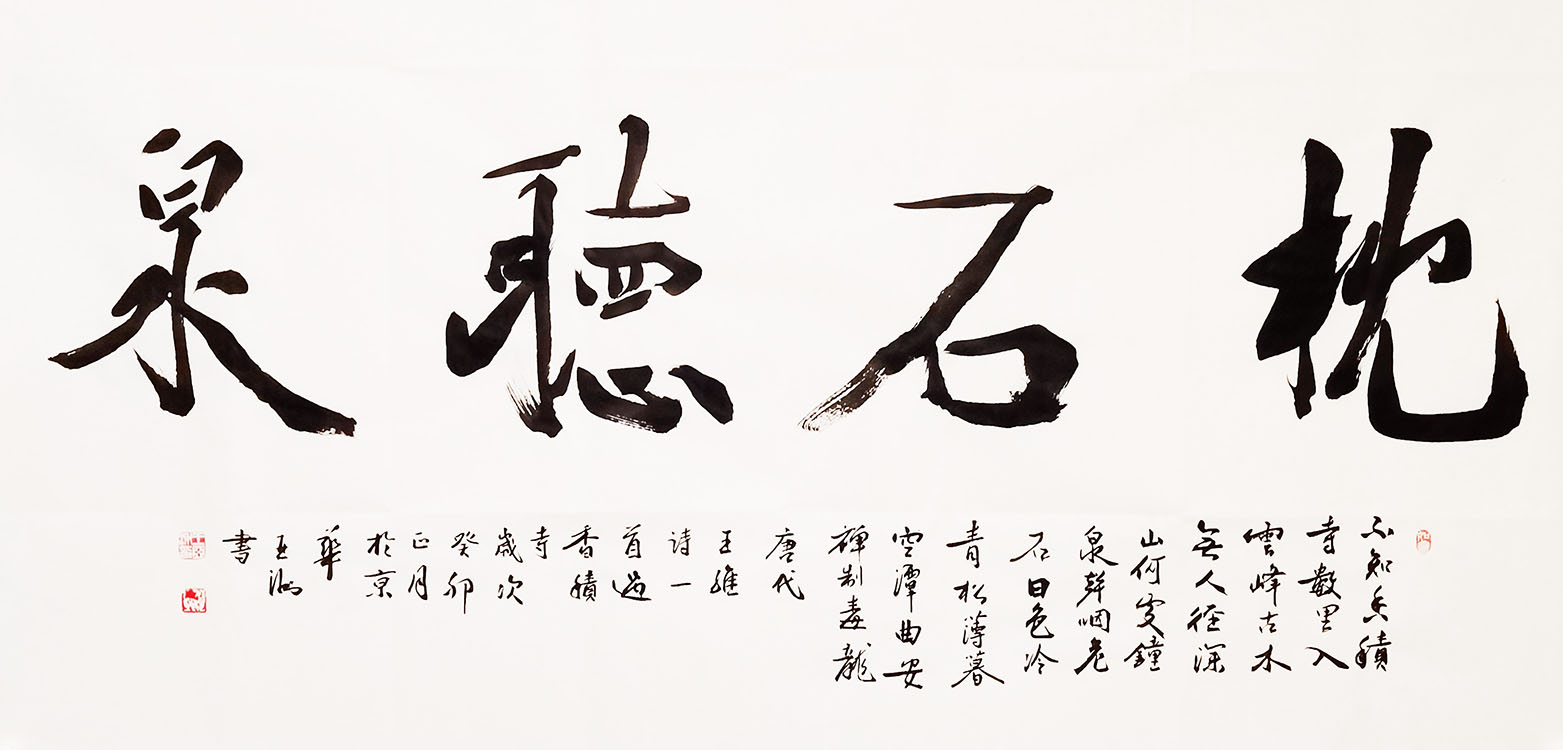 枕石聽泉
不知香積
寺數里入
雲峰古木
無人徑深
山何處鐘
泉聲咽危
石日色冷
青松薄暮
空潭曲安
禪制毒龍
唐代
王維
诗一
首過
香積
寺
歲次
癸卯
正月
於京
華
王
書